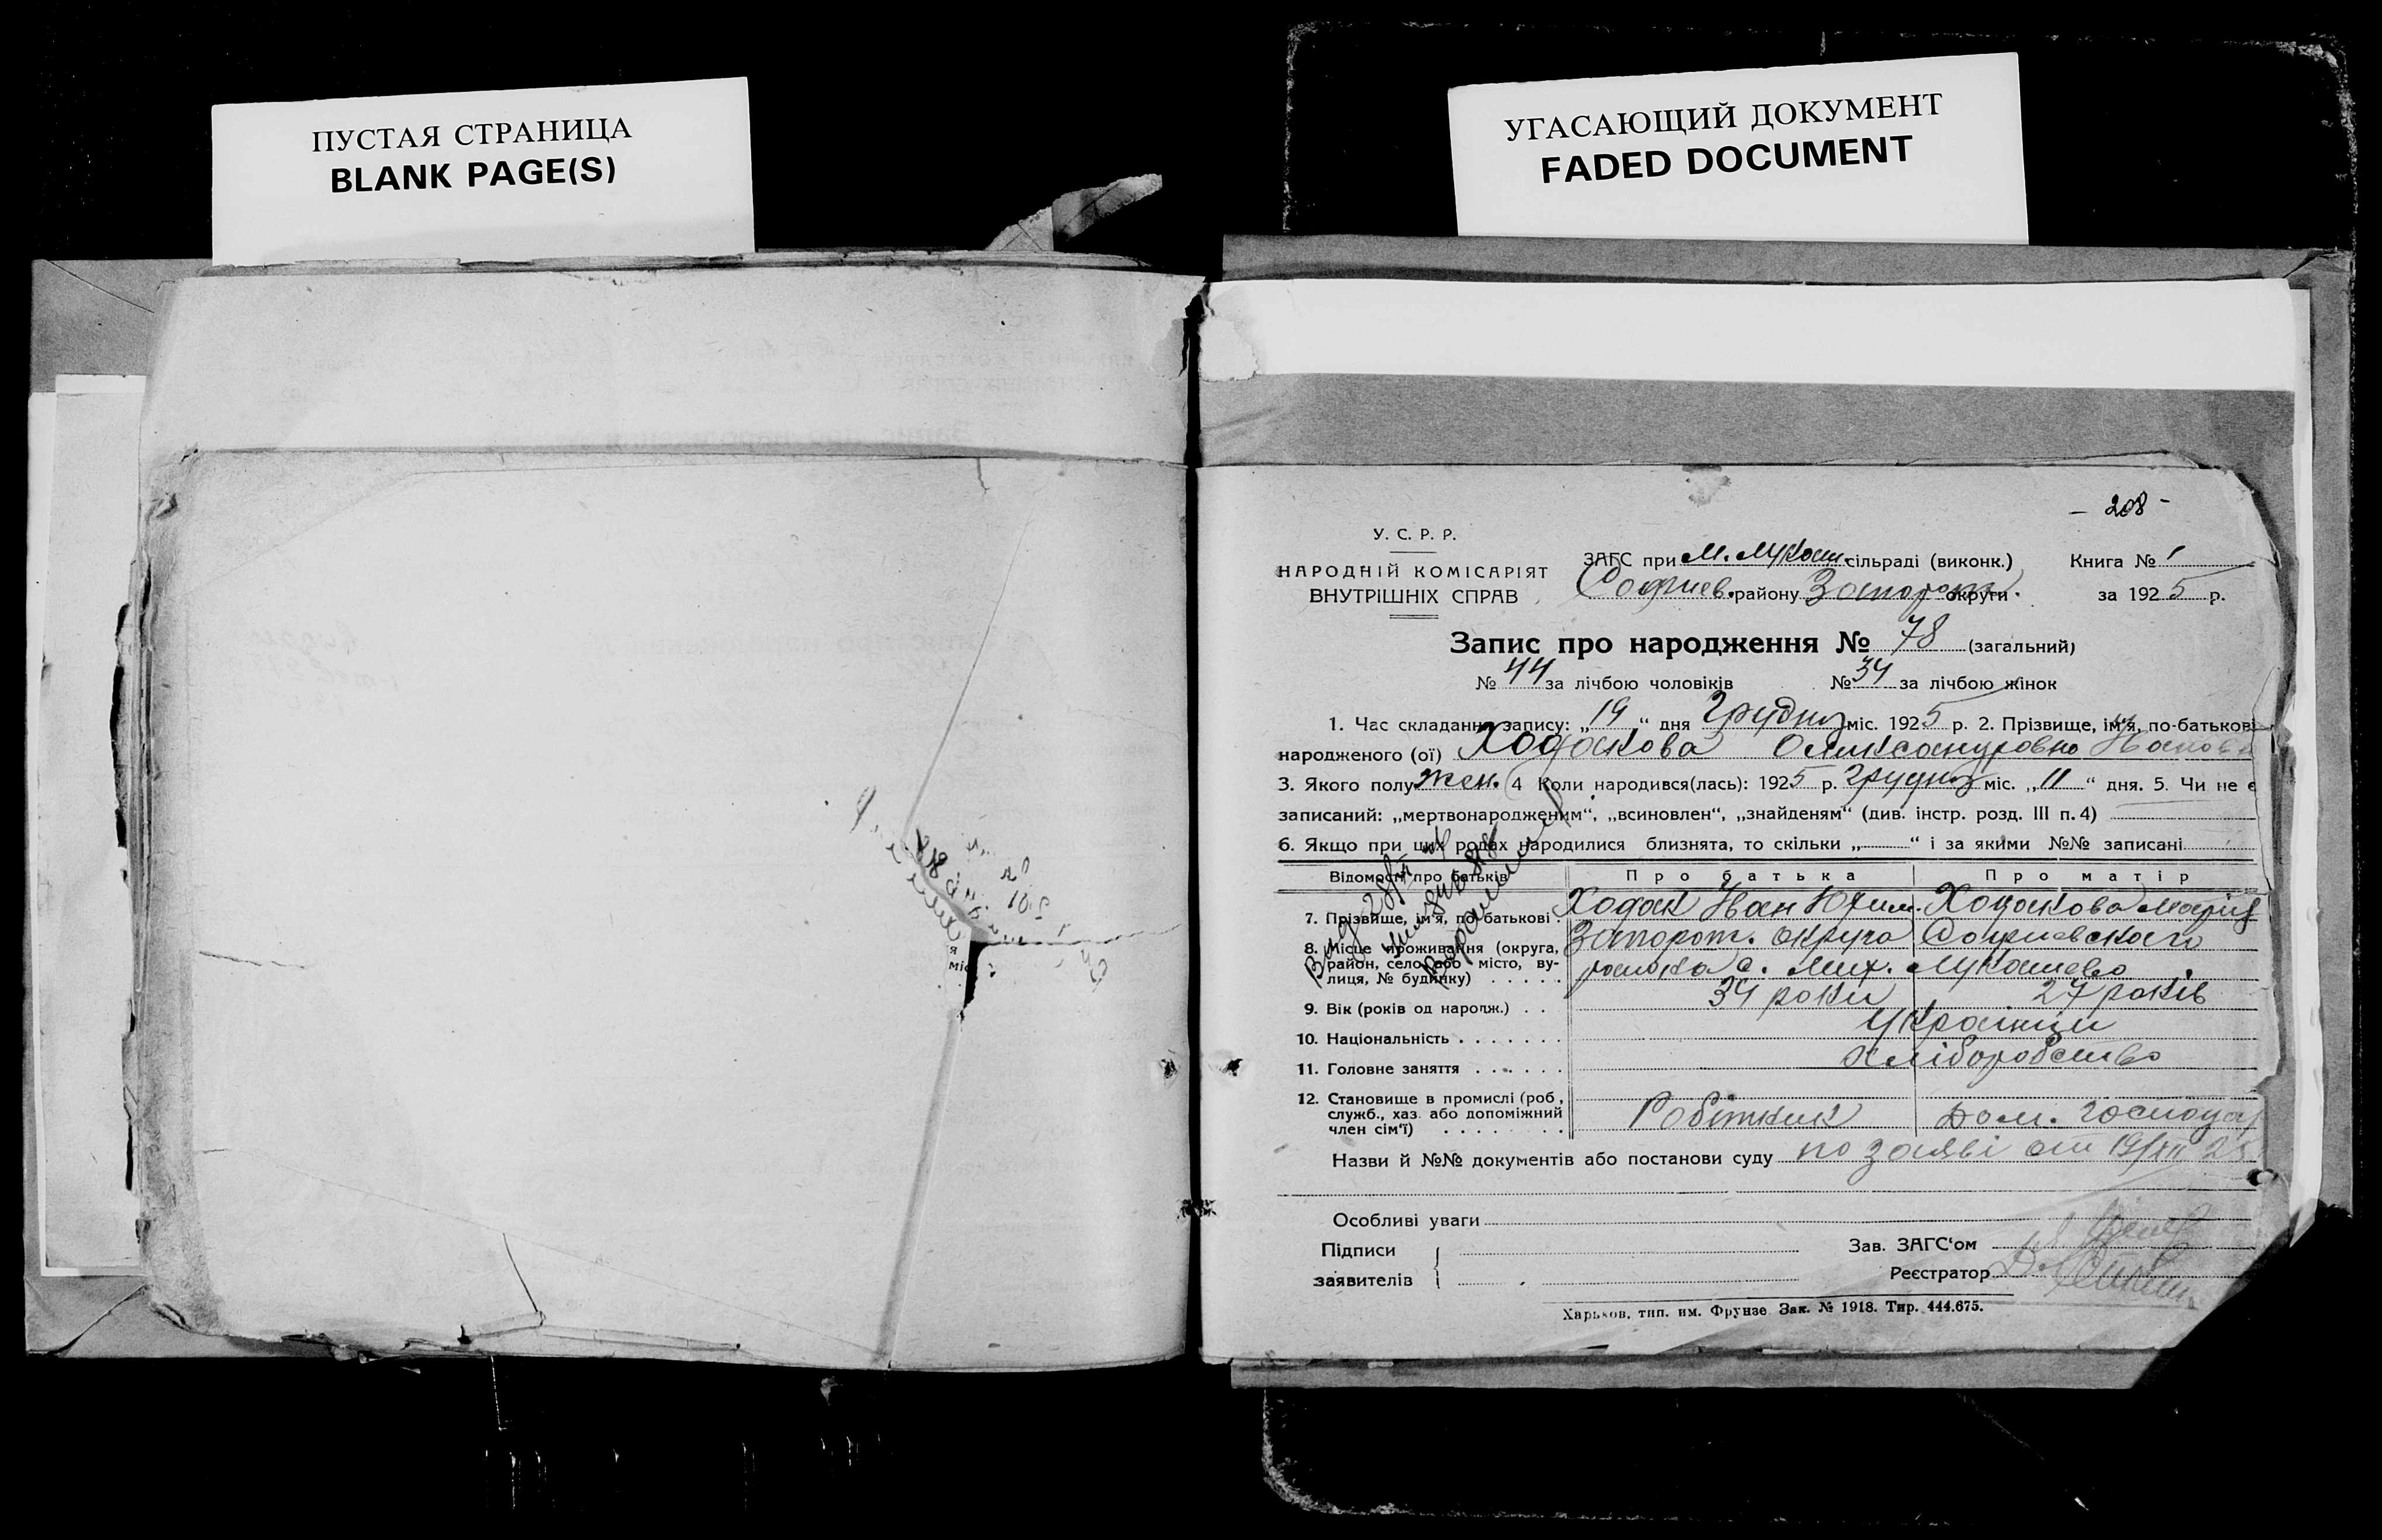 ПУСТАЯ СТРАНИЦА
BLANK PAGE(S)
УГАСАЮЩИЙ ДОКУМЕНТ
FADED DOCUMENT
- 208 -
У. С. Р. Р.
НАРОДНІЙ КОМІСАРІЯТ
ВНУТРІШНІХ СПРАВ
ЗАГС при М. Мукош. сільраді (виконк.)
Софиев. району Запорож. округи
Книга № 1
за 1925 р.
Запис про народження № 78 (загальний)
№ 44 за лічбою чоловіків № 34 за лічбою жінок
1. Час складання запису: „19“ дня Грудня міс. 1925 р. 2. Прізвище, ім'я, по-батькові
народженого (ої) Ходакова Олександровна
3. Якого полу Жен. 4 Коли народився(лась): 1925 р. Грудня міс. „11“ дня. 5. Чи не є
записаний: „мертвонародженим“, „всиновлен“, „знайденям“ (див. інстр. розд. III п. 4)
6. Якщо при цих родах народилися близнята, то скільки „—“ і за якими №№ записані
Відомості про батьків Про батька Про матір
7. Прізвище, ім'я, по-батькові Ходак Иван Юхим. Ходакова Марія
8. Місце проживання (округа, Запорож. округа Софиевского
район, село або місто, ву- района с. Мих. Лукашево
лиця, № будинку)
9. Вік (років од народж.) 34 роки 27 років
10. Національність Українци
11. Головне заняття Хліборобство
12. Становище в промислі (роб,
служб., хаз. або допоміжний Робітник Дом. господар
член сім'ї)
Назви й №№ документів або постанови суду по заяві от 19/XII 25
Особливі уваги
Підписи
заявителів
Зав. ЗАГС'ом
Реєстратор
Харьков, тип. им. Фрунзе. Зак. № 1918. Тир. 444.675.